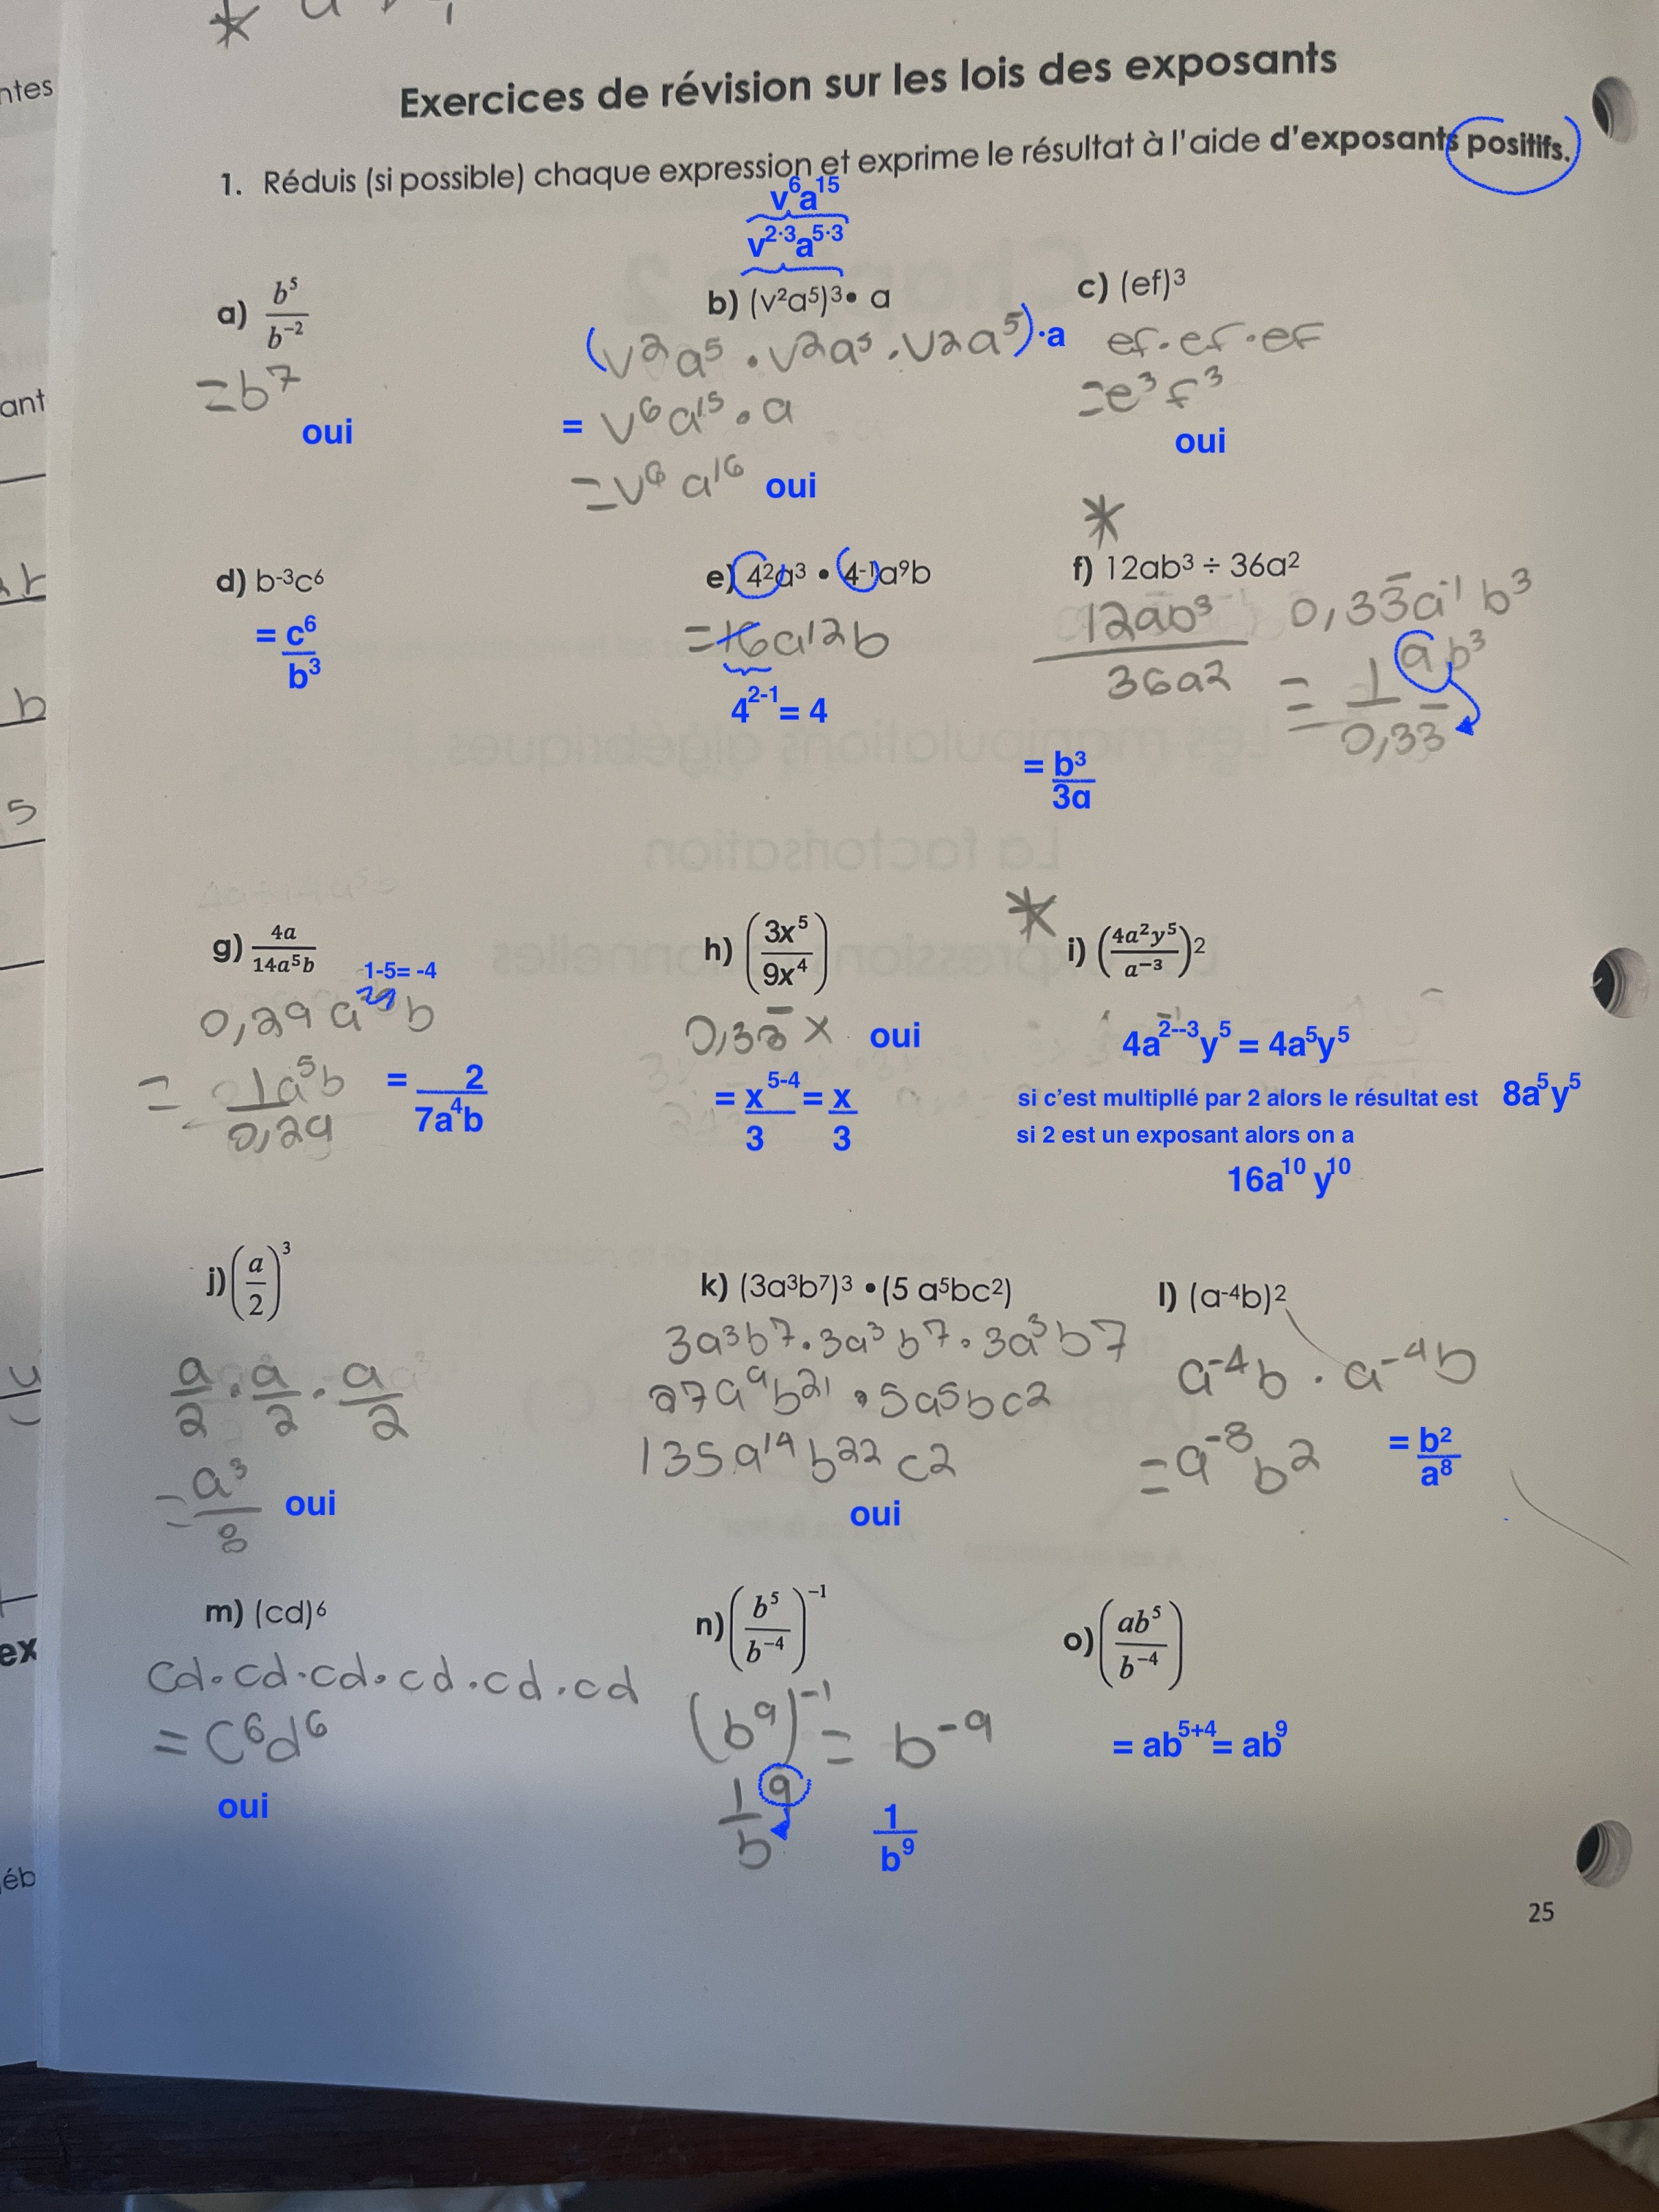 Exercices de révision sur les lois des exposants
1. Réduis (si possible) chaque expression et exprime le résultat à l'aide d'exposants positifs.
a) b⁵/b⁻²
= b⁷
oui
v⁶a¹⁵
v²·³a⁵·³
b) (v²a⁵)³• a
(v2a⁵ • v2a⁵ • v2a⁵)·a
= v⁶a¹⁵ • a
= v⁶ a¹⁶ oui
c) (ef)³
ef • ef • ef
= e³ f³
oui
d) b⁻³c⁶
= c⁶/b³
e) 4²a³ • 4⁻¹a⁹b
= 16a12b
4²⁻¹ = 4
f) 12ab³ ÷ 36a²
12ab³/36a2 0,33a⁻¹ b³
= 1/0,33 ab³
= b³/3a
g) 4a/14a⁵b
1-5= -4
0,29 a b
= 1a⁵b/0,29 = 2/7a⁴b
h) (3x⁵/9x⁴)
0,33 x oui
= x⁵⁻⁴/3 = x/3
i) (4a²y⁵/a⁻³)2
4a²⁻⁻³y⁵ = 4a⁵y⁵
si c'est multipllé par 2 alors le résultat est 8a⁵y⁵
si 2 est un exposant alors on a
16a¹⁰ y¹⁰
j) (a/2)³
a/2 • a/2 • a/2
= a³/8 oui
k) (3a³b⁷)³ •(5 a⁵bc²)
3a³b7 • 3a³ b7 • 3a³b7
27a⁹b²¹ • 5a⁵bc2
135a¹⁴b²²c2
oui
l) (a⁻⁴b)2
a⁻⁴b • a⁻⁴b
= a⁻⁸b2 = b²/a⁸
m) (cd)⁶
cd • cd • cd • cd • cd • cd
= c⁶d⁶
oui
n) (b⁵/b⁻⁴)⁻¹
(b⁹)⁻¹ = b⁻⁹
1/b 9
1/b⁹
o) (ab⁵/b⁻⁴)
= ab⁵⁺⁴= ab⁹
25